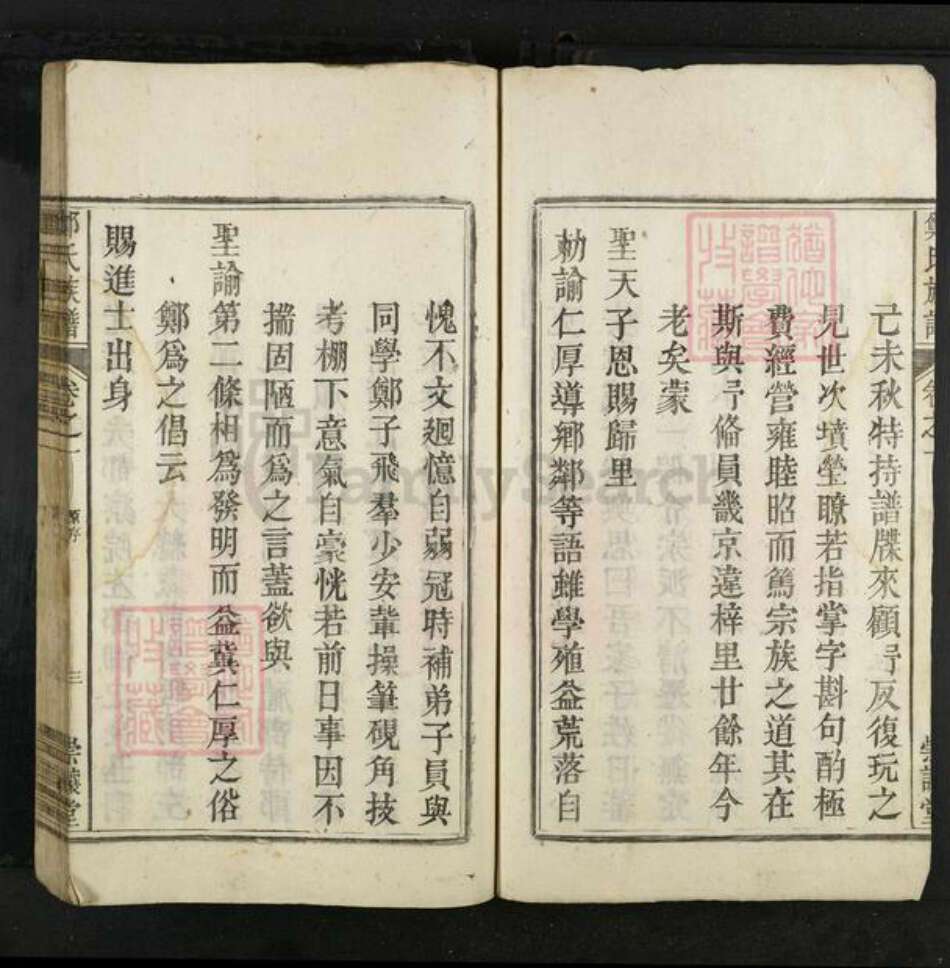 己未秋特持譜牒來顧予反復玩之
見世次墳塋瞭若指掌字斟句酌極
費經營雍睦昭而篤宗族之道其在
斯與予俻員畿京違梓里廿餘年今
老矣蒙
聖天子恩賜歸里
勅諭仁厚導鄉鄰等語雖學殖益荒落自
愧不文廻憶自弱冠時補弟子員與
同學鄭子飛羣少安軰操筆硯角技
考棚下意氣自豪恍若前日事因不
揣固陋而爲之言蓋欲與
聖諭第二條相爲發明而益冀仁厚之俗
鄭爲之倡云
賜進士出身
鄭氏族譜
卷之一
原序
三
FamilySearch